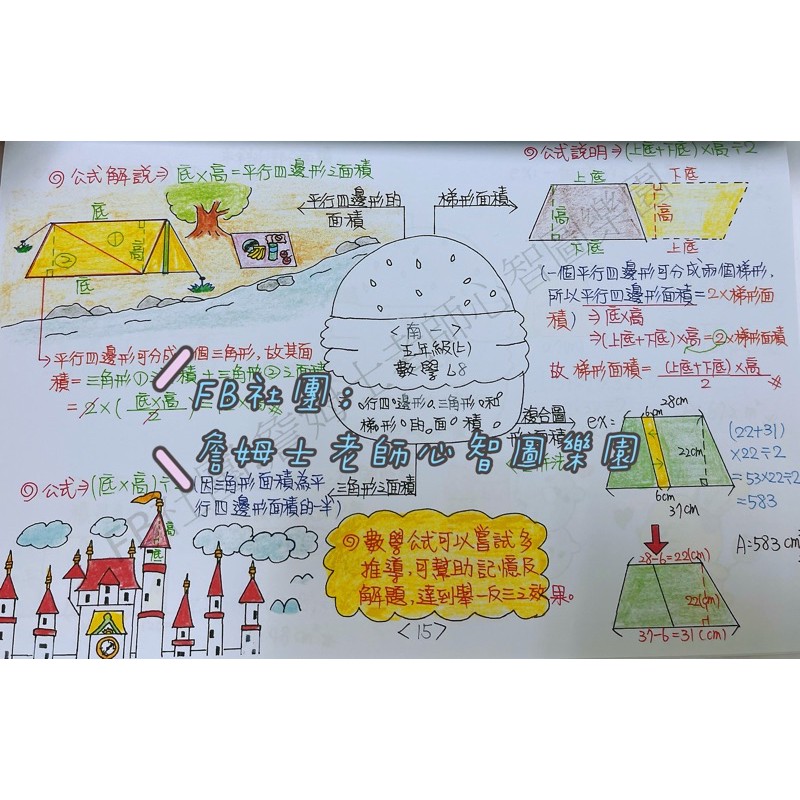 公式解說⇒底×高=平行四邊形之面積
底
高
①
②
底
平行四邊形的
面積
梯形面積
公式說明⇒(上底+下底)×高÷2
上底
下底
高
高
下底
上底
(一個平行四邊形可分成兩個梯形,
所以平行四邊形面積=2×梯形面
積)⇒底×高
⇒(上底+下底)×高=②×梯形面積
故 梯形面積=(上底+下底)×高
2
平行四邊形可分成 個三角形,故其面
積=三角形① 積+三角形②
=2×(底×高
2
<南 >
五年級(上)
數學 L8
行四邊形。三角形。和
梯形。的。面。積
複合圖
ex:
28cm
6cm
22cm
6cm
37cm
(22+31)
×22÷2
=53×22÷2
=583
A=583cm²
28-6=22(cm)
22(cm)
37-6=31(cm)
三角形之面積
公式⇒(底×高)÷
因三角形面積為平
行四邊形面積的一半)
高
底
數學公式可以嘗試多
推導,可幫助記憶及
解題,達到舉一反三之效果。
<15>
FB社團:
詹姆士老師心智圖樂園